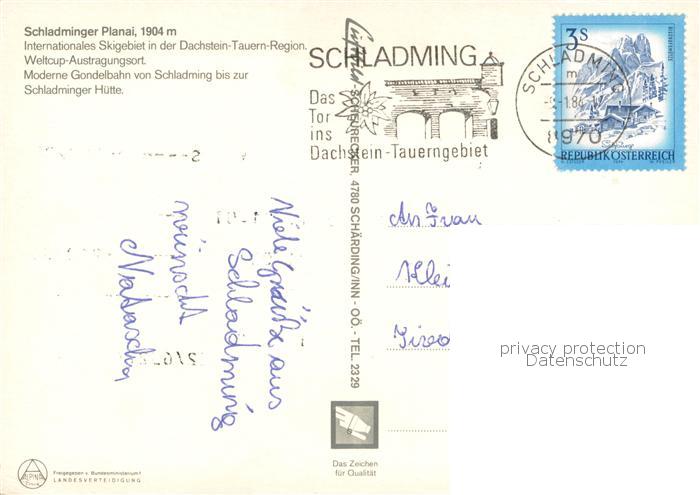 Schladminger Planai, 1904 m
Internationales Skigebiet in der Dachstein-Tauern-Region.
Weltcup-Austragungsort.
Moderne Gondelbahn von Schladming bis zur
Schladminger Hütte.
SCHLADMING
Das
Tor
ins
Dachstein-Tauerngebiet
SCHLADMING
1.84
8970
3S
REPUBLIK ÖSTERREICH
SCHEURECKER, 4780 SCHÄRDING/INN - OÖ. - TEL. 23 29
Viele Grüße aus
Schladming
wünscht
Natascha
An Frau
Klei
privacy protection
Datenschutz
Das Zeichen
für Qualität
ALPINA
Freigegeben v. Bundesministerium f.
LANDESVERTEIDIGUNG